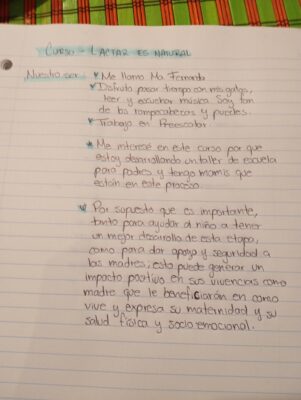 CURSO - LACTAR ES NATURAL
Nuestro ser: * Me llamo Ma. Fernanda
* Disfruto pasar tiempo con mis gatos,
leer y escuchar música. Soy fan
de los rompecabezas y puzzles.
* Trabajo en Preescolar.
* Me interesé en este curso por que
estoy desarrollando un taller de escuela
para padres y tengo mamis que
están en este proceso.
* Por supuesto que es importante,
tanto para ayudar al niño a tener
un mejor desarrollo de esta etapa,
como para dar apoyo y seguridad a
las madres, esto puede generar un
impacto positivo en sus vivencias como
madre que le beneficiarán en como
vive y expresa su maternidad y su
salud física y socioemocional.